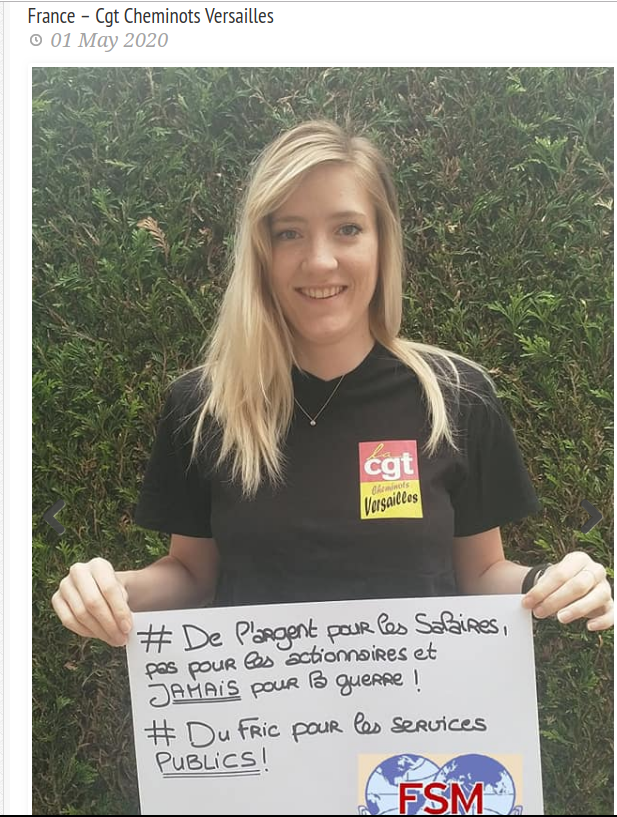 France – Cgt Cheminots Versailles
01 May 2020
la
cgt
Cheminots
Versailles
# De l'argent pour les salaires,
pas pour les actionnaires et
JAMAIS pour la guerre !
# Du FRic pour les services
PUBLiCS !
FSM